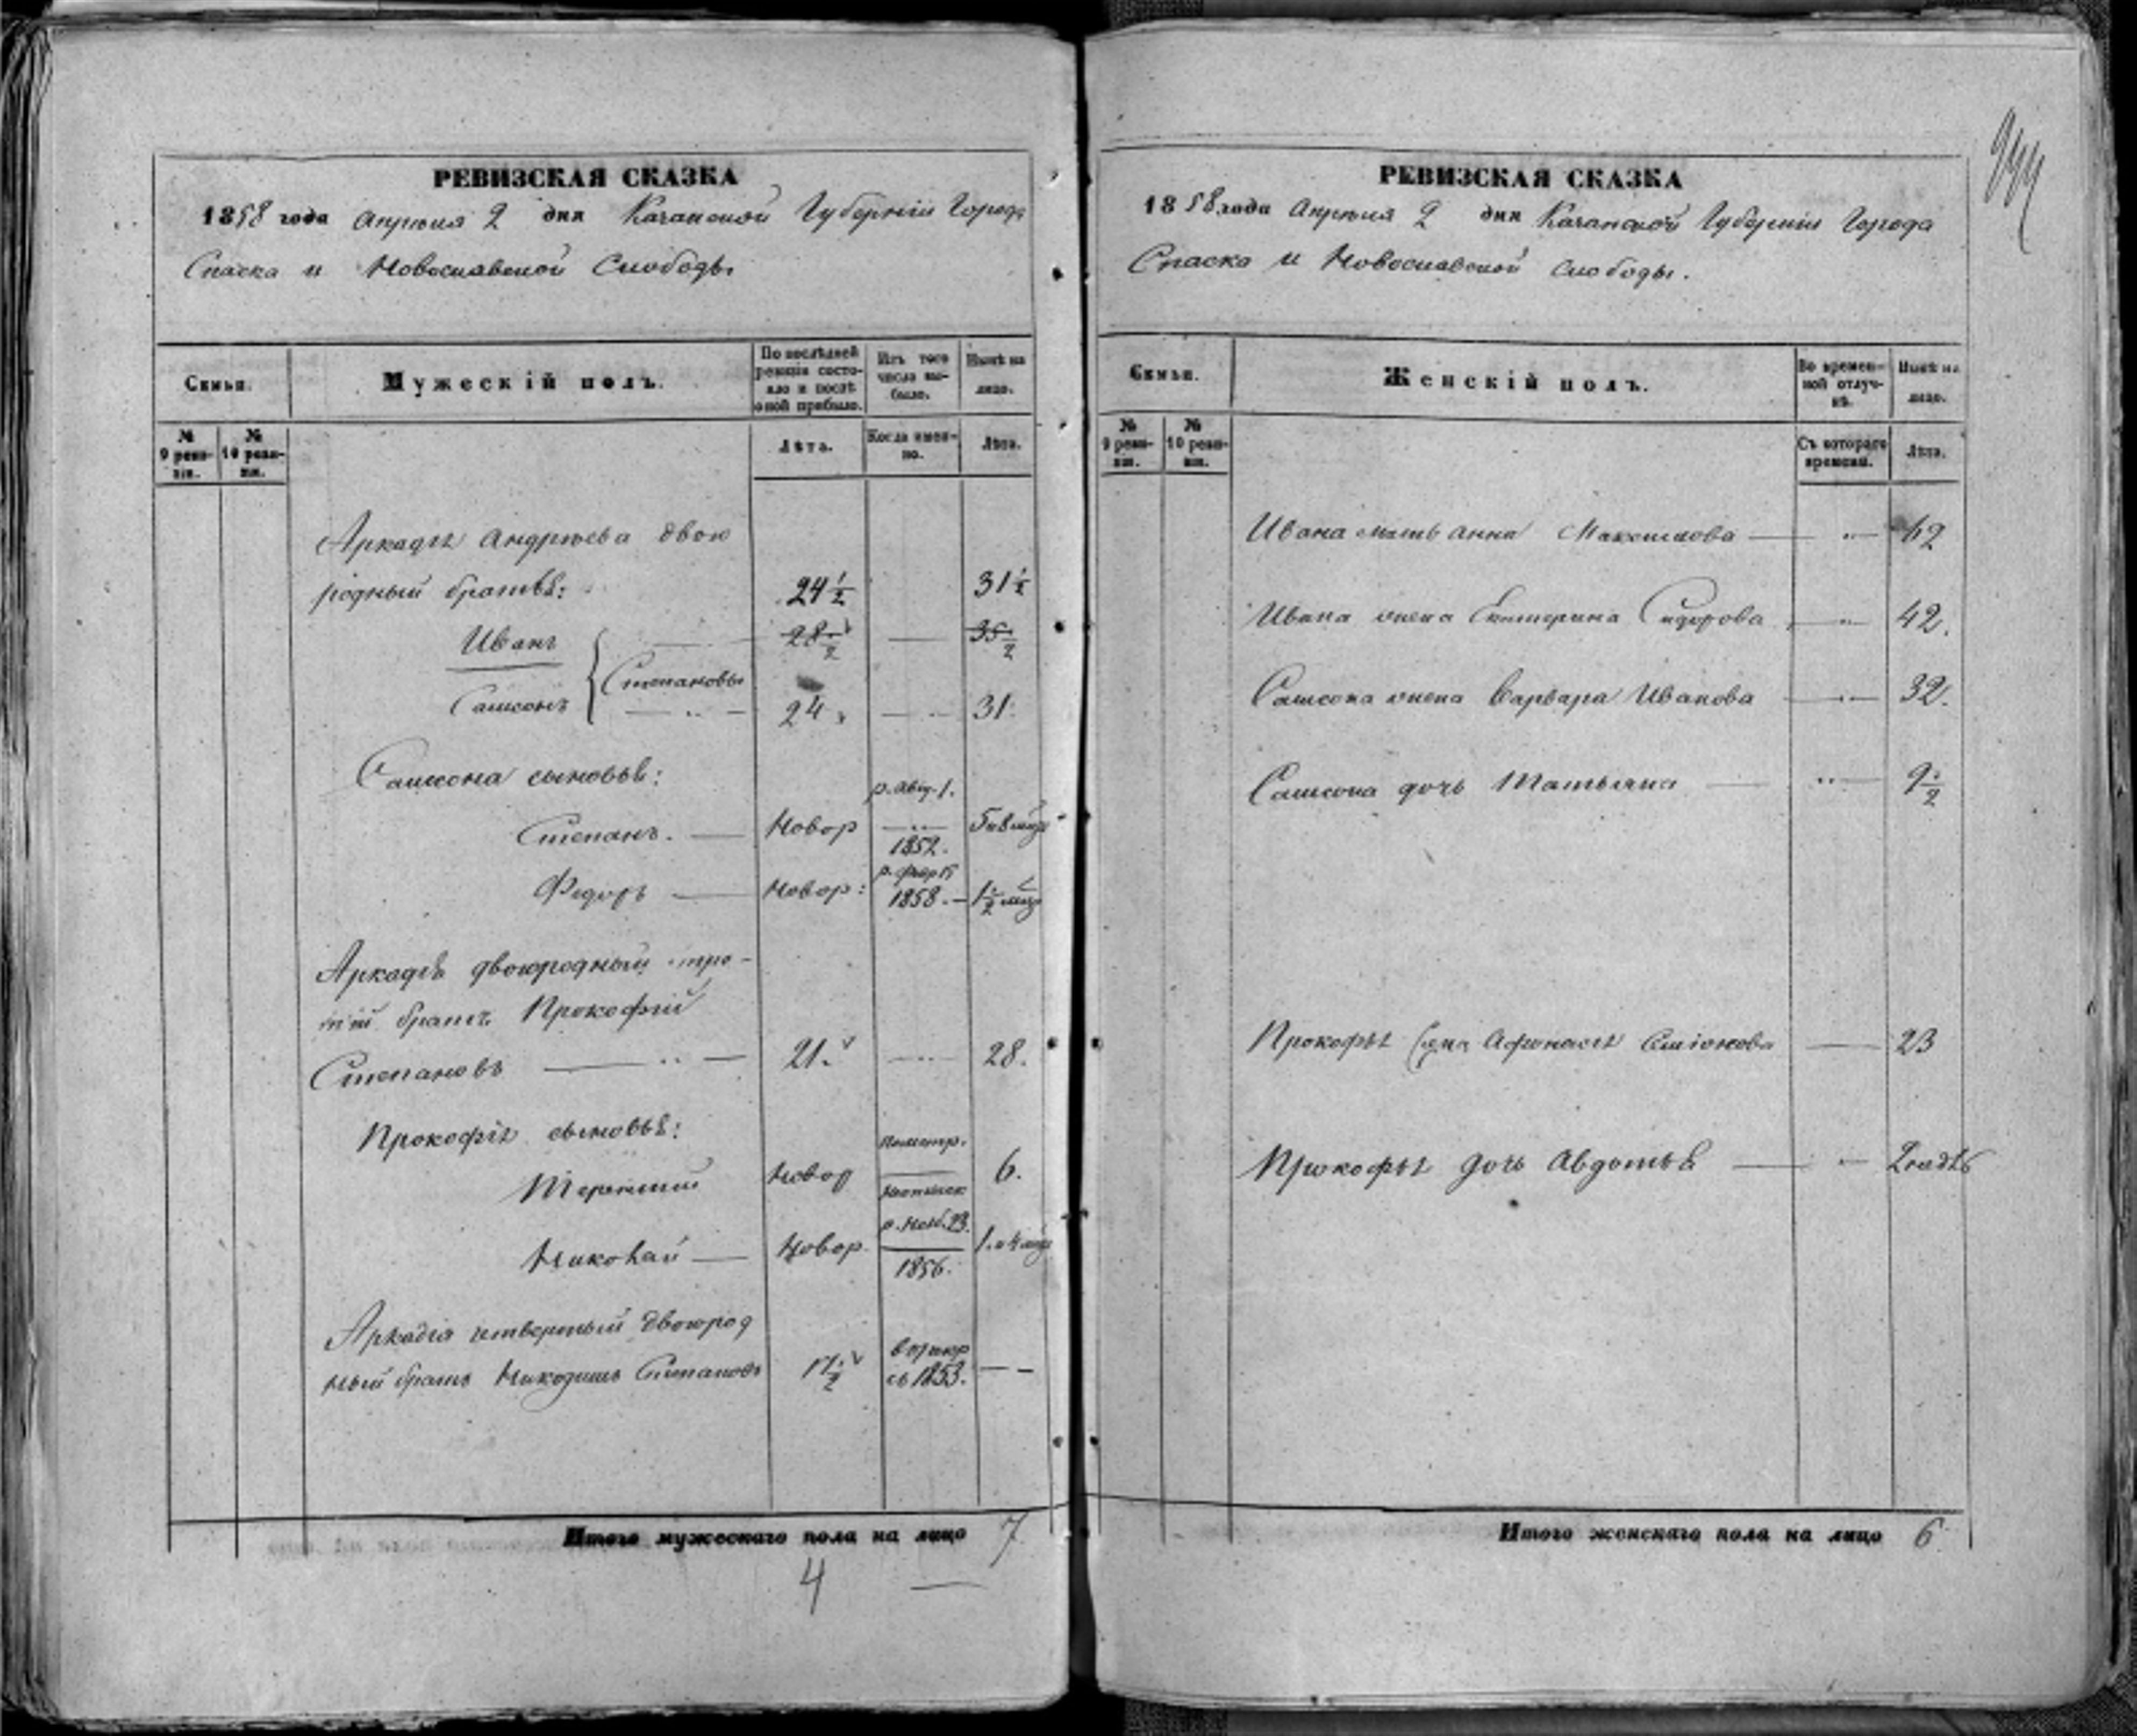 РЕВИЗСКАЯ СКАЗКА
1858 года Апрѣля 2 дня Казанской Губерніи Города
Спаска и Новоспаской Слободы
Семьи.
Мужескій полъ.
По послѣдней ревизіи состояло и послѣ оной прибыло.
Изъ того числа выбыло.
Нынѣ на лицо.
№ 9 ревизіи.
№ 10 ревизіи.
Лѣта.
Когда именно.
Лѣта.
Аркадія Андрѣева двою
родный братья:
24 1/2
31 1/2
Иванъ
28 1/2
35 1/2
Степановы
Самсонъ
24
31.
Самсона сыновья:
Степанъ. Новор р. Авг. 1. 1852. 5 и 8 мѣц
Федоръ Новор: 1858. 1 1/2 мѣц
Аркадія двоюродный тре-
тій братъ Прокофій
Степановъ 21. 28.
Прокофія сыновья:
Терентій Новор 6.
Николай Новор р. Нояб. 23. 1856. 1. и 4 мѣц
Аркадія четвертый двоюрод
ный братъ Никодимъ Степановъ 17 1/2 1853.
Итого мужескаго пола на лицо 7
4
РЕВИЗСКАЯ СКАЗКА
1858 года Апрѣля 2 дня Казанской Губерніи Города
Спаска и Новоспаской слободы.
Семьи.
Женскій полъ.
Во временной отлучкѣ.
Нынѣ на лицо.
№ 9 ревизіи.
№ 10 ревизіи.
Съ котораго времени.
Лѣта.
Ивана мать Анна Максимова 62
Ивана жена Екатерина Сидорова 42.
Самсона жена Варвара Иванова 32.
Самсона дочь Татьяна 9 1/2
Прокофья жена Афонасья 23
Прокофья дочь Авдотья
Итого женскаго пола на лицо 6